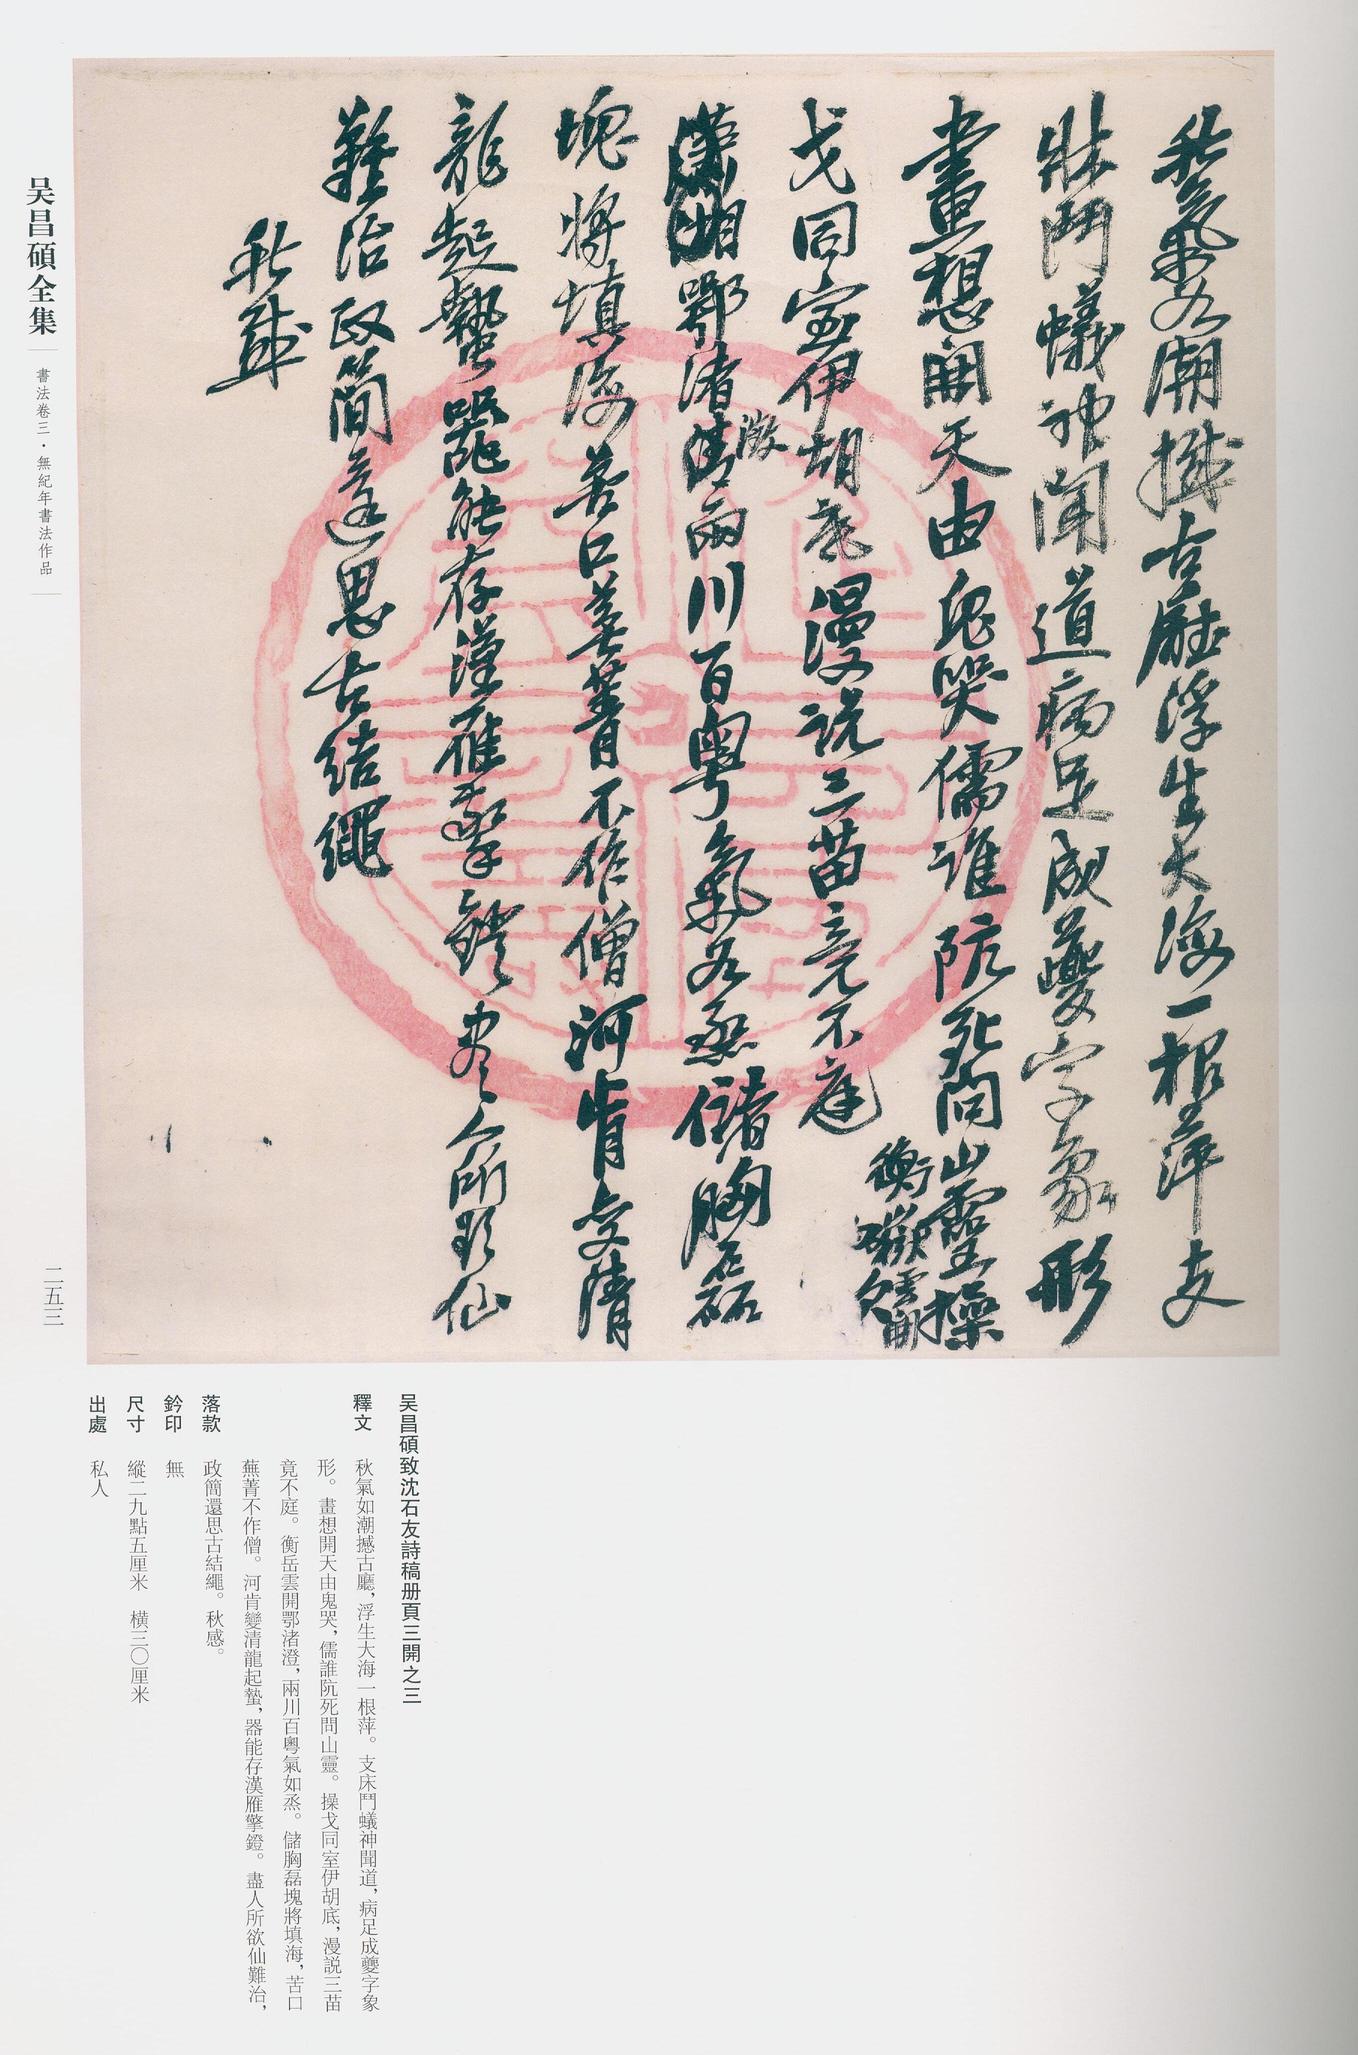 秋氣如潮撼古廳浮生大海一根萍支
牀鬥蟻神聞道病足成夔字象形
畫想開天由鬼哭儒誰阬死問山靈操
戈同室伊胡底漫説三苗竟不庭
衡嶽雲開
鄂渚
澂
兩川百粵氣如烝儲胸磊
塊將填海苦口蕪菁不作僧河肯變清
龍起蟄器能存漢雁擎鐙盡人所欲仙
難治政簡還思古結繩
秋感
吴昌碩全集
書法卷三·無紀年書法作品
二五三
吴昌碩致沈石友詩稿册頁三開之三
釋文 秋氣如潮撼古廳，浮生大海一根萍。支床鬥蟻神聞道，病足成夔字象
形。畫想開天由鬼哭，儒誰阬死問山靈。操戈同室伊胡底，漫説三苗
竟不庭。衡岳雲開鄂渚澄，兩川百粵氣如烝。儲胸磊塊將填海，苦口
蕪菁不作僧。河肯變清龍起蟄，器能存漢雁擎鐙。盡人所欲仙難治，
政簡還思古結繩。秋感。
落款
鈐印 無
尺寸 縱二九點五厘米 橫三〇厘米
出處 私人